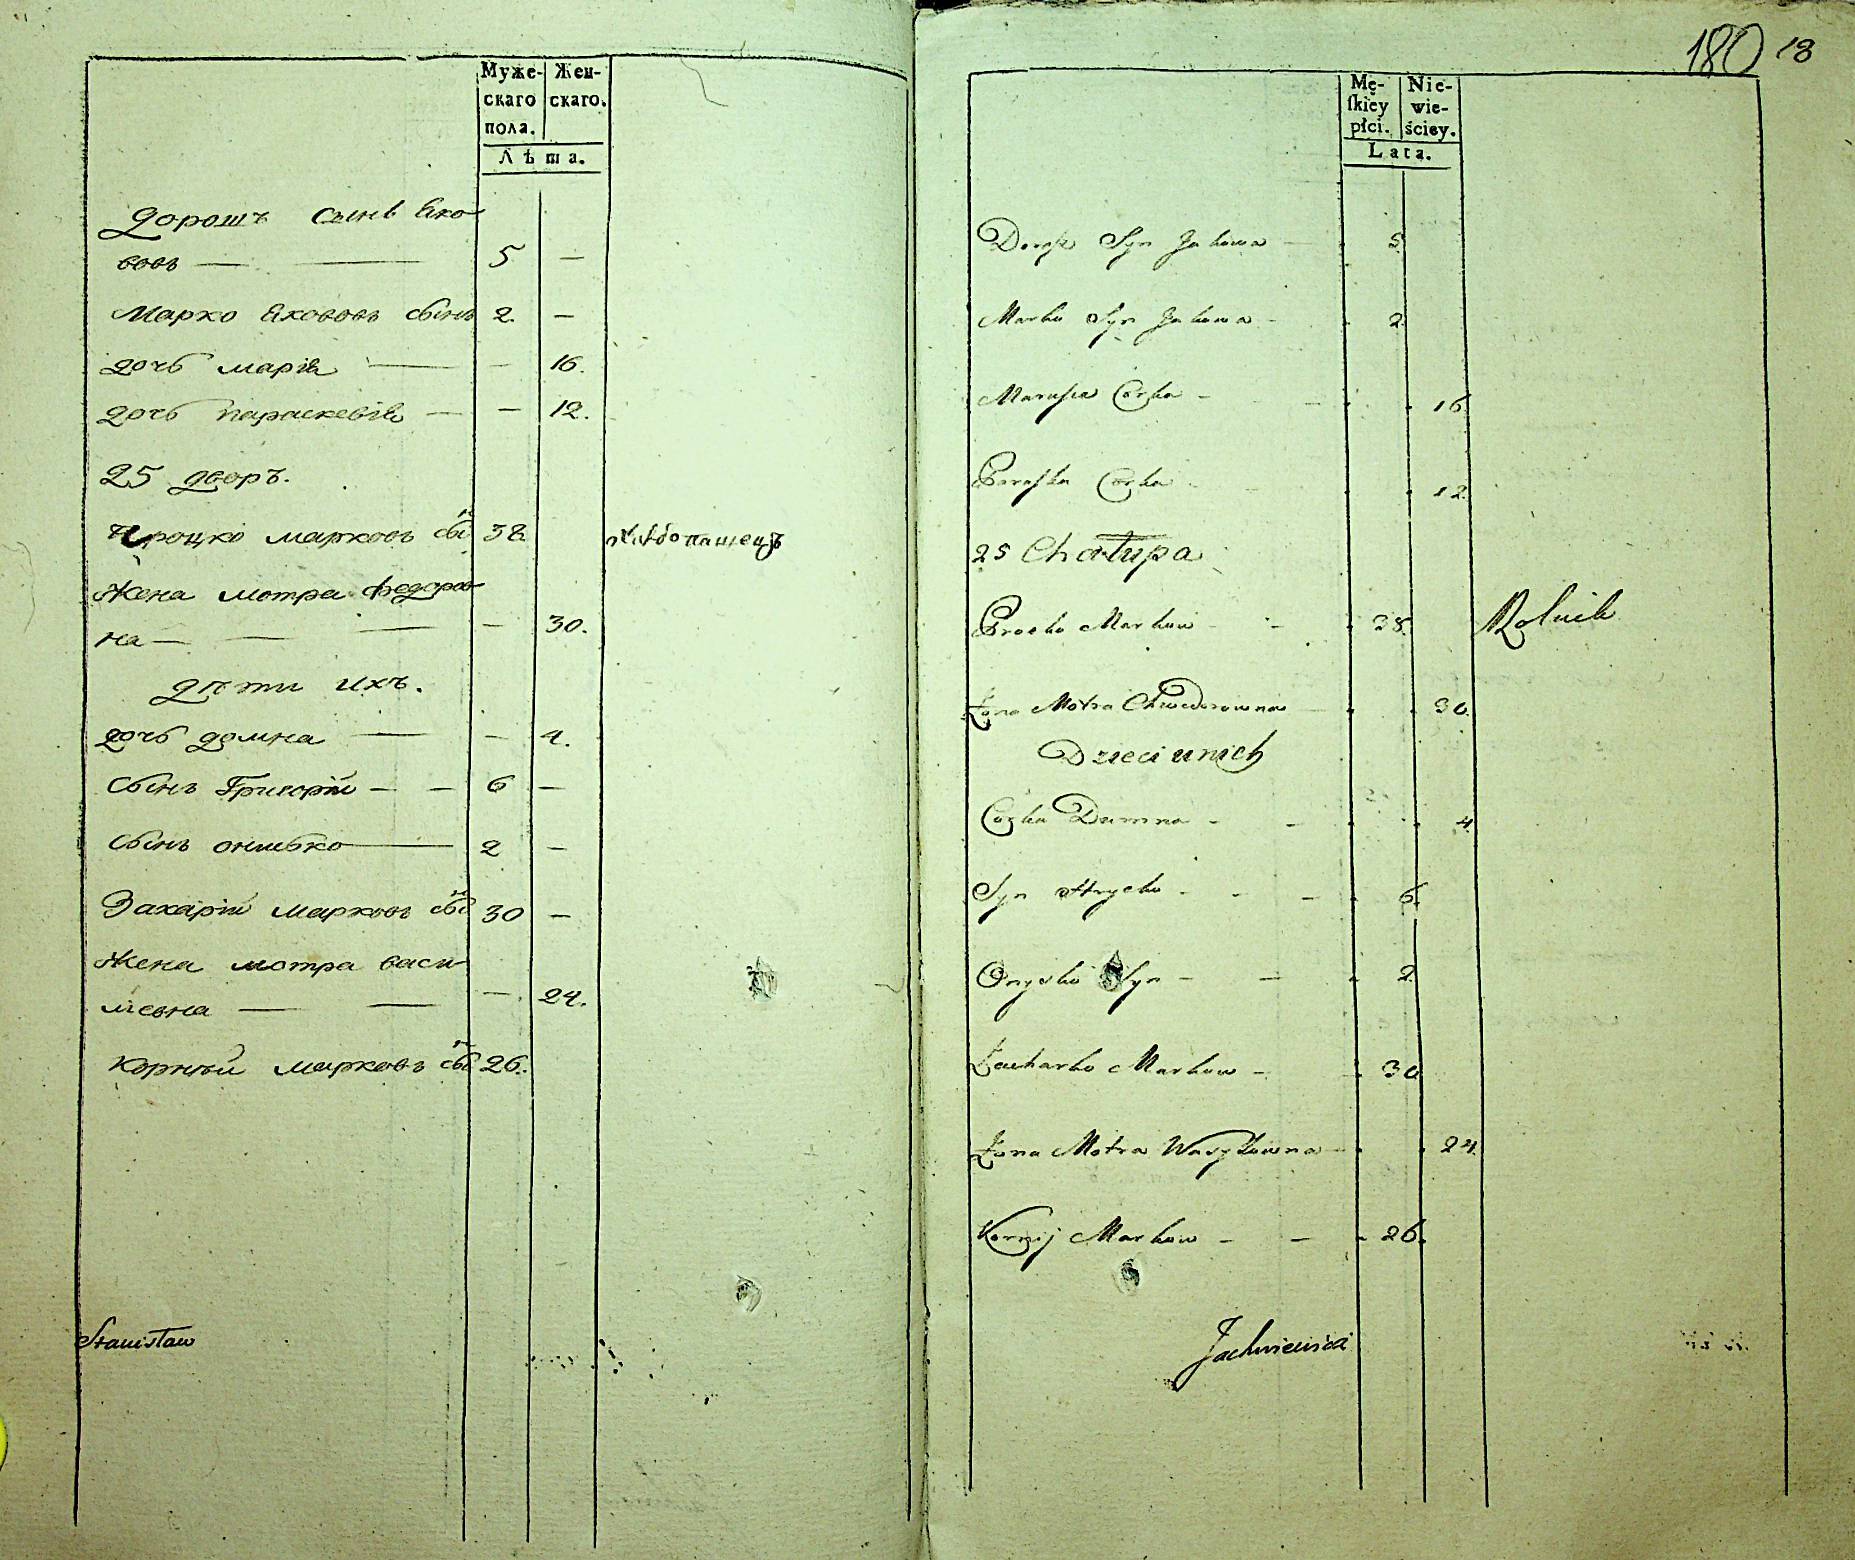 Муже-
скаго
пола.
Жен-
скаго.
Лѣта.
Дорошъ сынъ Яко
вовъ — — 5 —
Марко Якововъ сынъ 2. —
дочь марія — — 16.
дочь параскевія — — 12.
25 дворъ.
Процко марковъ сынъ 38 хлѣбопашецъ
Жена мотра федоров
на — — — — 30.
дѣти ихъ.
дочь домна — — 4.
сынъ Григорій — — 6 —
сынъ онисько — 2 —
Захарій марковъ сынъ 30 —
Жена мотра васи
лievна — — — 24.
корнѣй марковъ сынъ 26.
Stanisław
180 18
Mę-
ſkiey
płci.
Nie-
wie-
ściey.
Lata.
Dorosz Syn Jakowa — 5
Marko Syn Jakowa — 2
Marusia Corka — 16
Paraſka Corka — 12
25 Chałupa
Procko Markow — 38. Rolnik
Żona Motra Chwedorowna — 30.
Dzieci u nich
Corka Dumna — — 4
Syn Hrycko — — — 6.
Onysko Syn — — 2
Zacharko Markow — 30
Żona Motra Wasylowna — 24.
Kornij Markow — — 26.
Jachniewicz